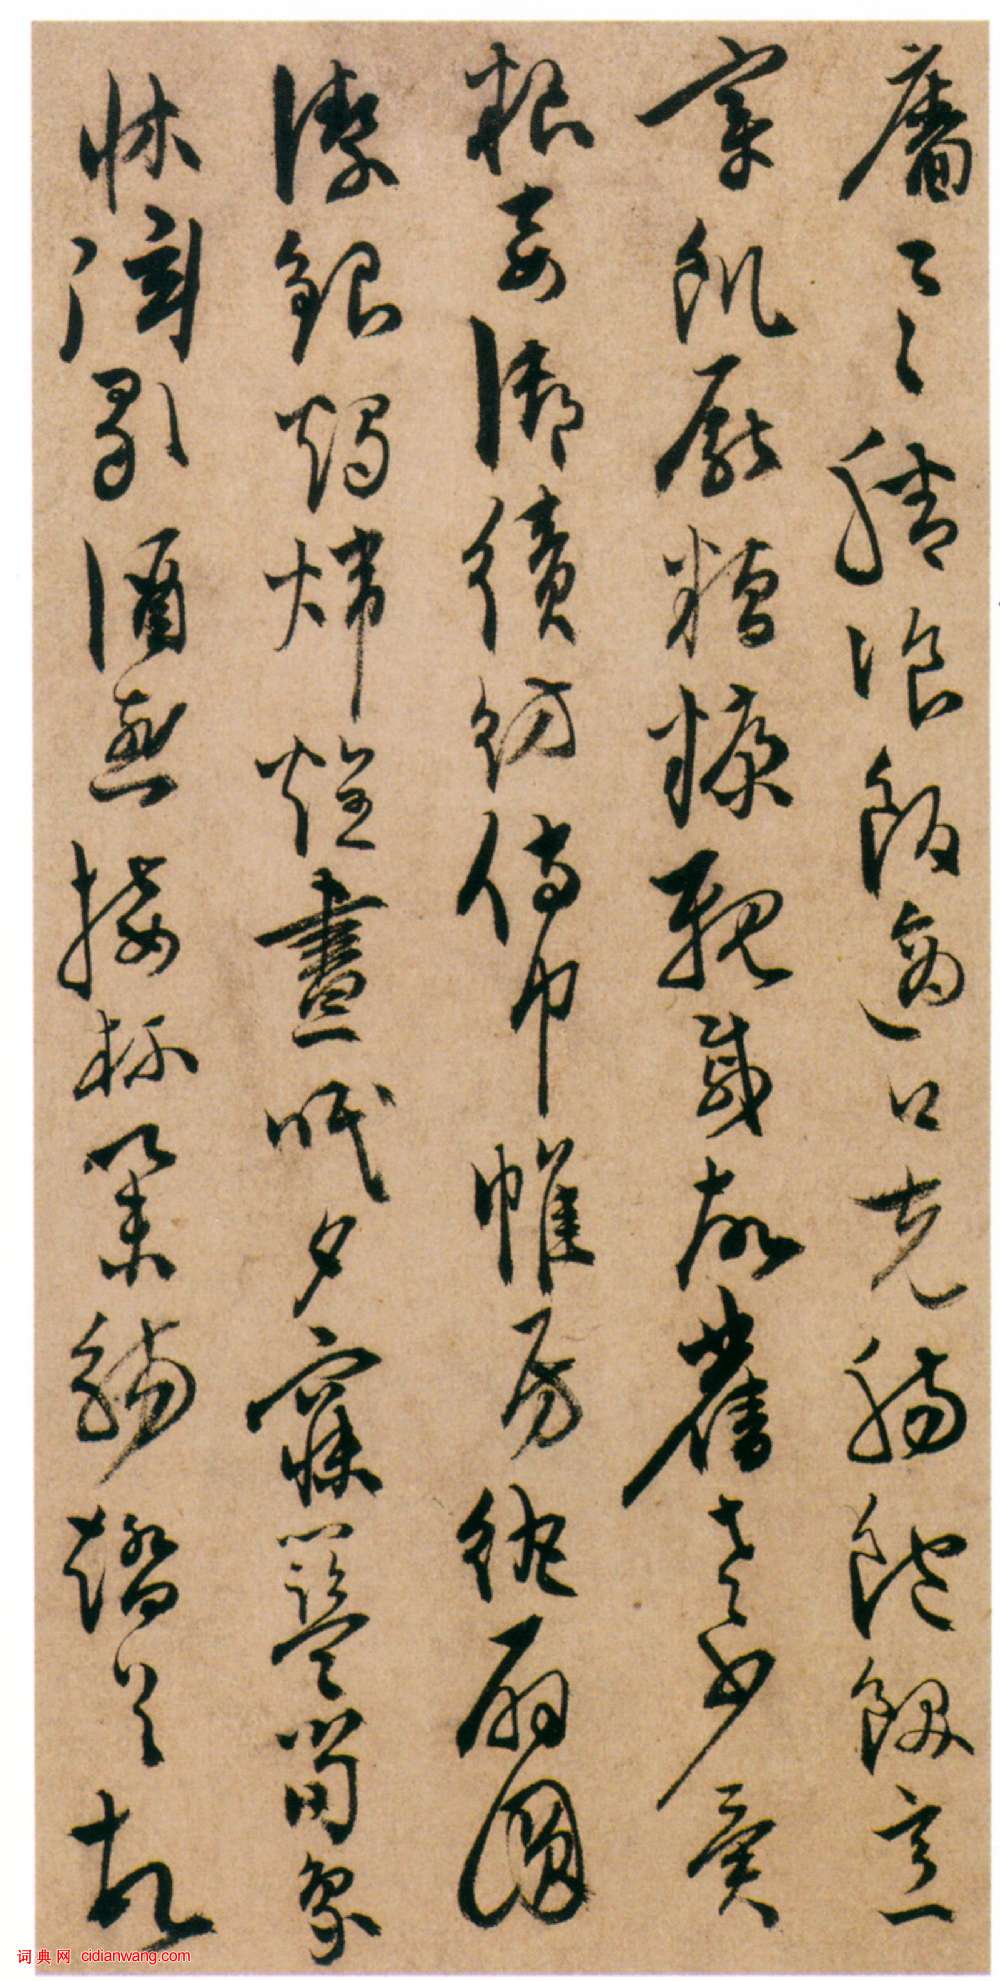 牆具膳飡飯適口充腸飽飫烹
宰飢厭糟糠親戚故舊老少異
糧妾御績紡侍巾帷房紈扇圓
潔銀燭煒煌晝眠夕寐籃筍象
牀弦歌酒讌接杯舉觴矯手頓
词典网 cidianwang.com